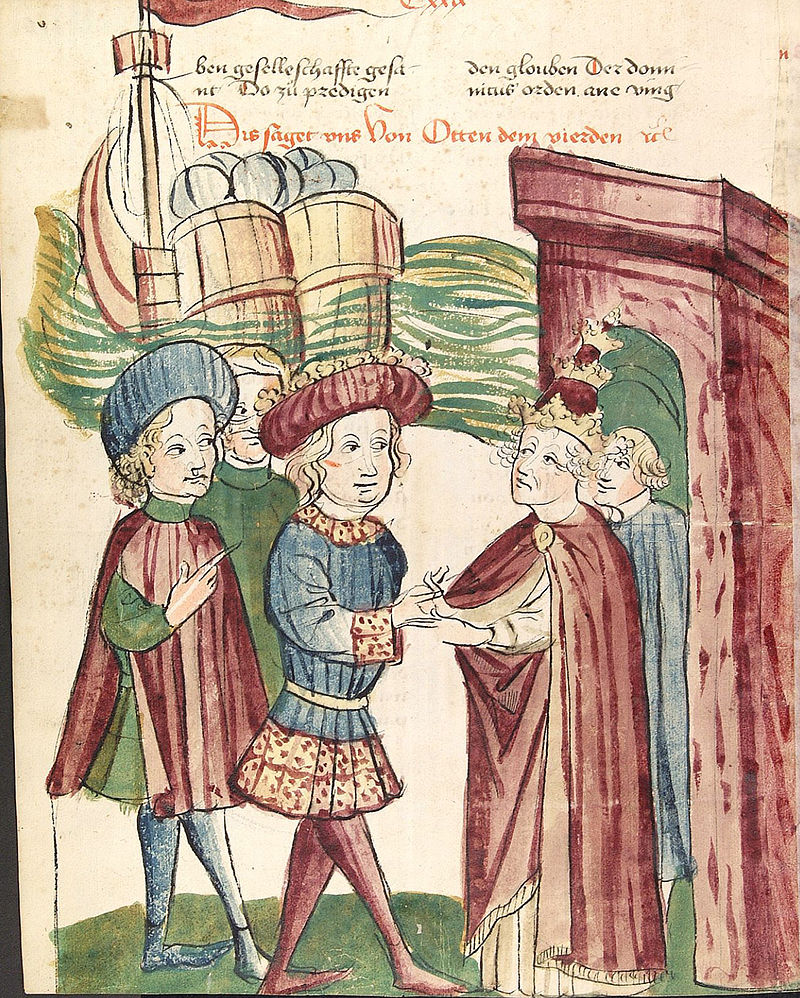 ben geselleschaffte gesa-
nt Do zu predigen
den glouben Der domi-
nicus orden ane ving
Dis saget vns von Otten dem vierden